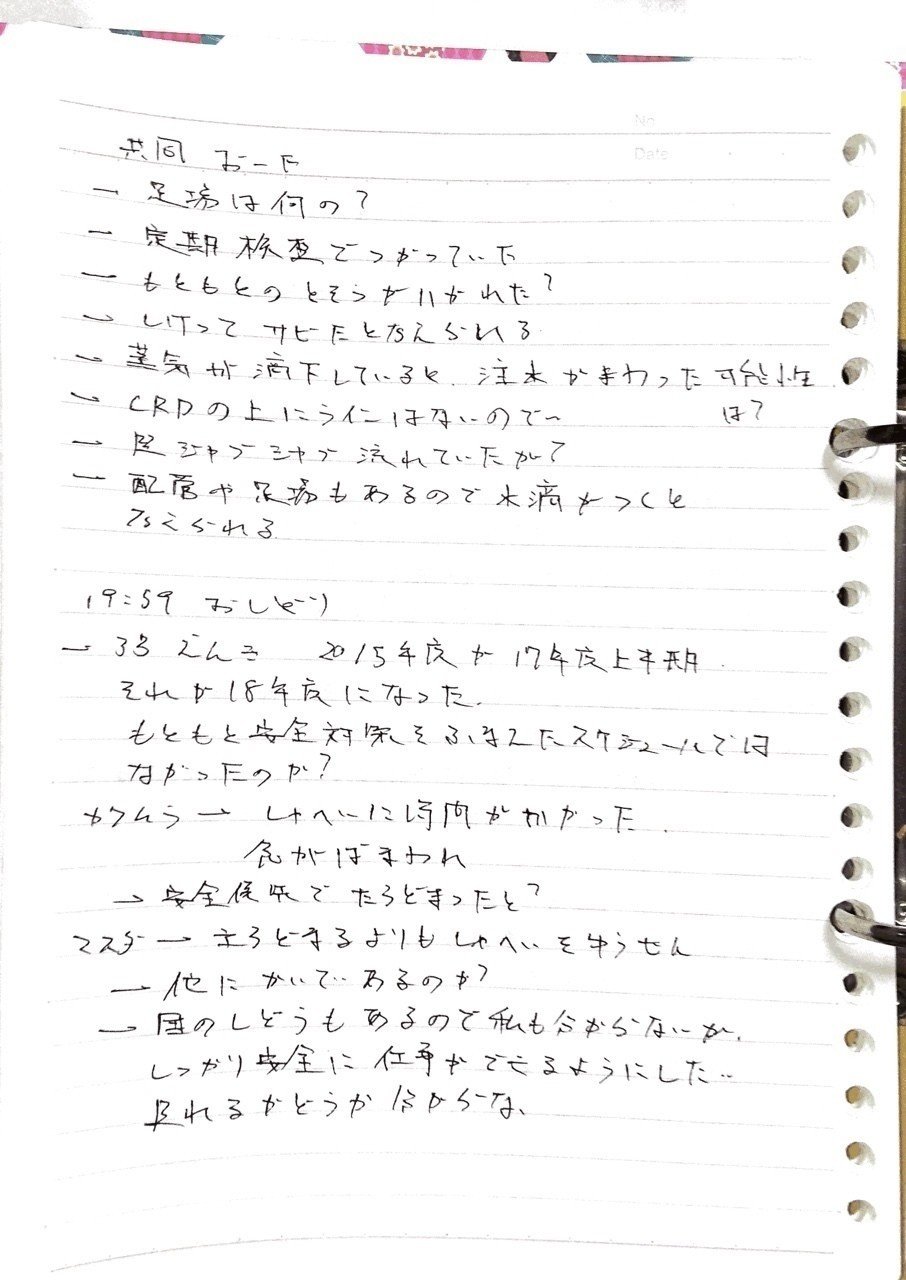 No
Date
共同 おーた
ー 足場は何の?
ー 定期検査でつかっていた
ー もともとのとそうがはがれた?
→ しけってサビたと考えられる
→ 蒸気が滴下していると、注水がまわった可能性は?
→ CRDの上にラインはないので〜
→ 足ジャブジャブ流れていたが?
ー 配管や足場もあるので水滴がつくと
考えられる
19:59 おしどり
→ 3号 ねんき 2015年度が17年度上半期
それが18年度になった。
もともと安全対策をふまえたスケジュールでは
なかったのか?
→ しゃへいに時間がかかった
→ 安全優先で たちどまったと?
マスダ → 立ちどまるよりもしゃへいをゆうせん
→ 他にかいてあるのか?
→ 国のしどうもあるので私も分からないが、
しっかり安全に仕事ができるようにした‥
足れるかどうか分からな、